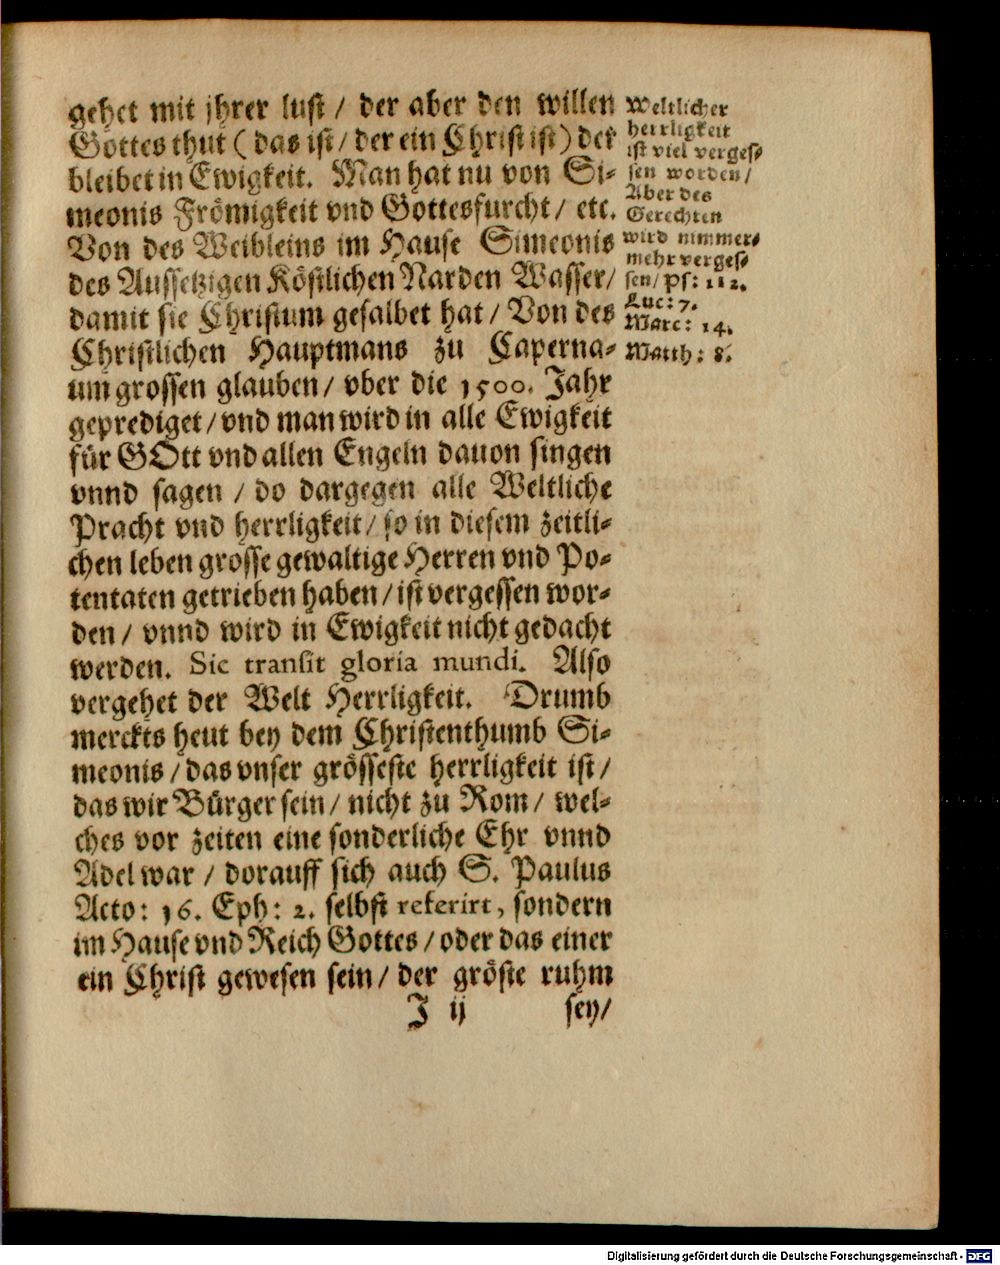 gehet mit jhrer lust / der aber den willen
Gottes thut ( das ist / der ein Christ ist ) der
bleibet in Ewigkeit. Man hat nu von Si-
meonis Frömigkeit vnd Gottesfurcht / etc.
Von des Weibleins im Hause Simeonis
des Aussetzigen Köstlichen Narden Wasser /
damit sie Christum gesalbet hat / Von des
Christlichen Hauptmans zu Caperna-
um grossen glauben / vber die 1500. Jahr
geprediget / vnd man wird in alle Ewigkeit
für GOtt vnd allen Engeln dauon singen
vnnd sagen / do dargegen alle Weltliche
Pracht vnd herrligkeit / so in diesem zeitli-
chen leben grosse gewaltige Herren vnd Po-
tentaten getrieben haben / ist vergessen wor-
den / vnnd wird in Ewigkeit nicht gedacht
werden. Sic transit gloria mundi. Also
vergehet der Welt Herrligkeit. Drumb
merckts heut bey dem Christenthumb Si-
meonis / das vnser grösseste herrligkeit ist /
das wir Bürger sein / nicht zu Rom / wel-
ches vor zeiten eine sonderliche Ehr vnnd
Adel war / dorauff sich auch S. Paulus
Acto: 16. Eph: 2. selbst referirt, sondern
im Hause vnd Reich Gottes / oder das einer
ein Christ gewesen sein / der gröste ruhm
J ij sey /
Weltlicher
herrligkeit
ist viel verges-
sen worden /
Aber des
Gerechten
wird nimmer-
mehr verges-
sen / Ps: 112.
Luc: 7.
Marc: 14.
Matth: 8.
Digitalisierung gefördert durch die Deutsche Forschungsgemeinschaft - DFG